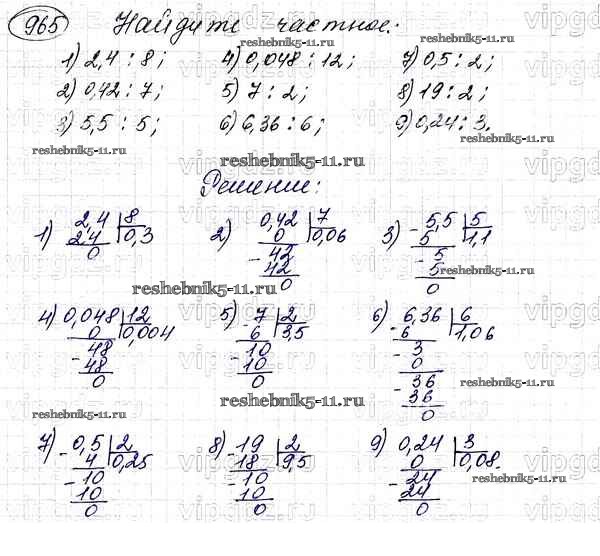 965 Найдите частное:
reshebnik5-11.ru
1) 2,4 : 8; 4) 0,048 : 12; 7) 0,5 : 2;
2) 0,42 : 7; 5) 7 : 2; 8) 19 : 2;
3) 5,5 : 5; 6) 6,36 : 6; 9) 0,24 : 3.
reshebnik5-11.ru reshebnik5-11.ru
reshebnik5-11.ru
Решение:
1) 2,4 | 8 2) 0,42 | 7 3) - 5,5 | 5
2,4 0,3 0 0,06 5 1,1
0 - 42 - 5
42 5
0 0
reshebnik5-11.ru reshebnik5-11.ru
4) 0,048 | 12 5) - 7 | 2 6) - 6,36 | 6
0 0,004 6 3,5 6 1,06
- 48 - 10 - 3
48 10 0
0 0 - 36
36
0
reshebnik5-11.ru reshebnik5-11.ru reshebnik5-11.ru
7) - 0,5 | 2 8) - 19 | 2 9) 0,24 | 3
4 0,25 18 9,5 0 0,08.
- 10 - 10 - 24
10 10 24
0 0 0
reshebnik5-11.ru reshebnik5-11.ru